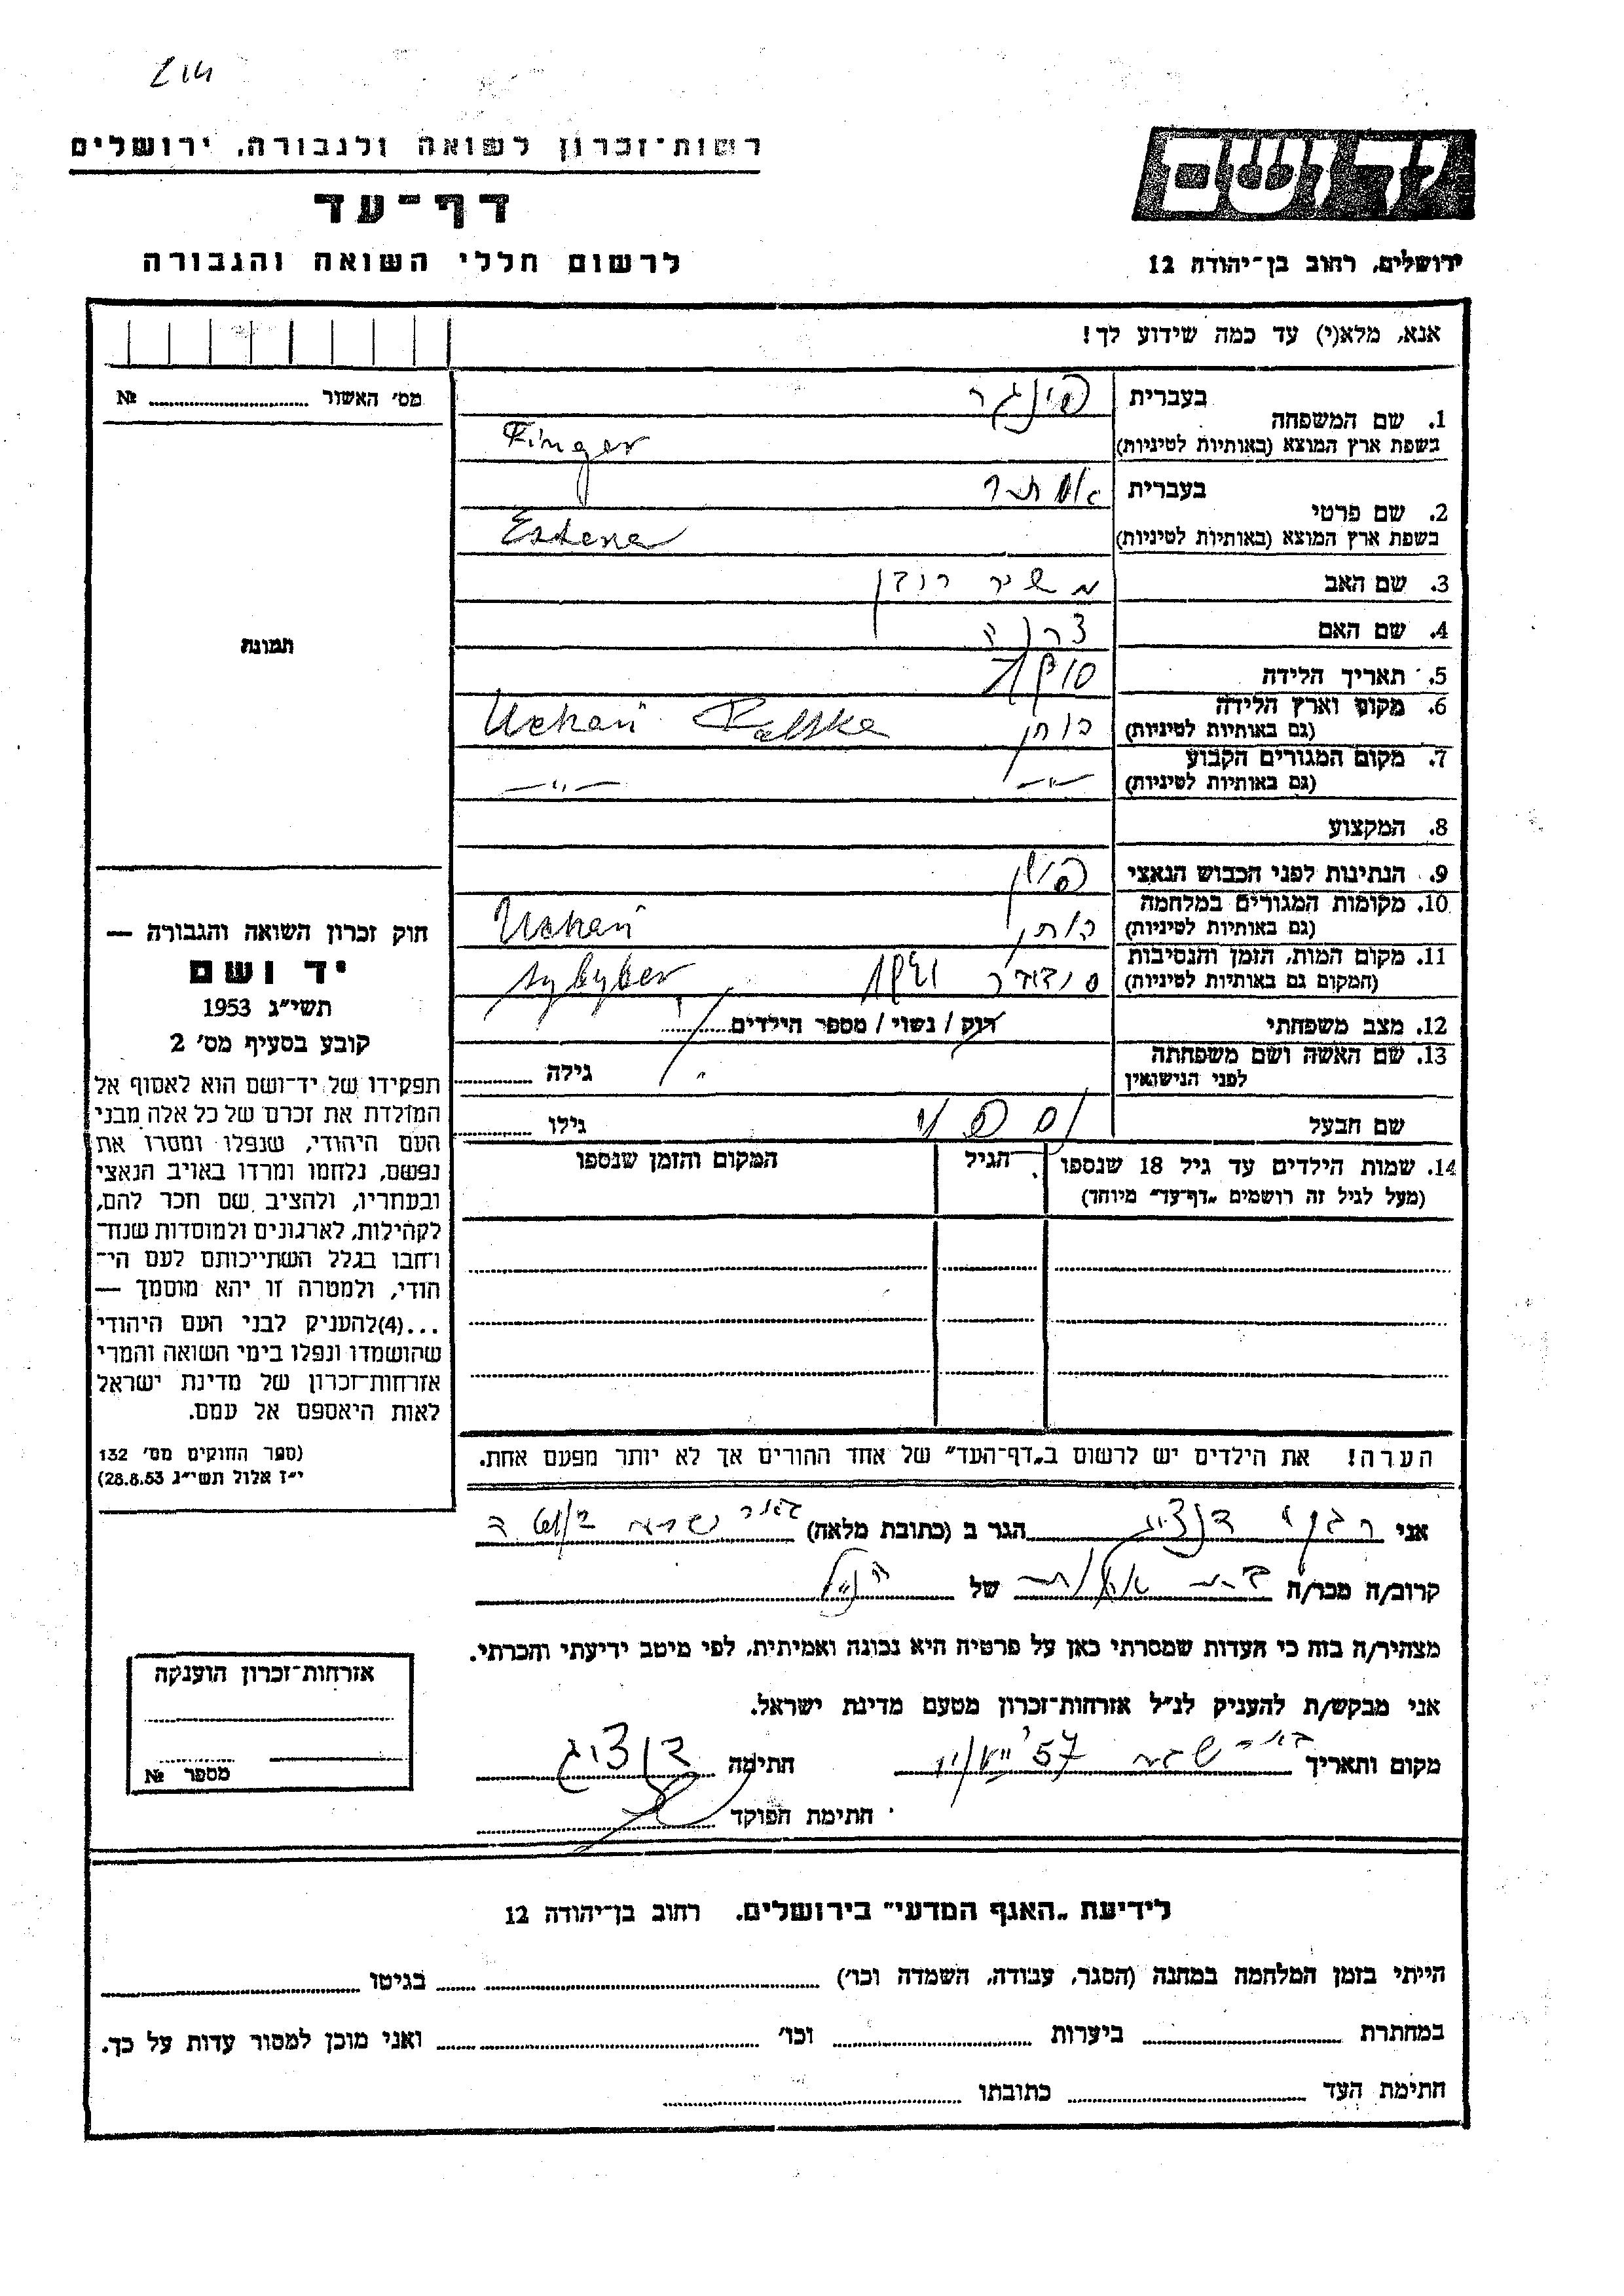 רשות-זכרון לשואה ולגבורה, ירושלים
דף-עד
לרשום חללי השואה והגבורה
יד ושם
ירושלים, רחוב בן-יהודה 12
אנא, מלא(י) עד כמה שידוע לך!
מס' האשור № 
1. שם המשפחה
בעברית פינגר
בשפת ארץ המוצא (באותיות לטיניות) Finger
2. שם פרטי
בעברית אסתר
בשפת ארץ המוצא (באותיות לטיניות) Estera
3. שם האב
4. שם האם
5. תאריך הלידה
6. מקום וארץ הלידה
(גם באותיות לטיניות) Uchań Polska
7. מקום המגורים הקבוע
(גם באותיות לטיניות) —"— —"—
8. המקצוע
9. הנתינות לפני הכבוש הנאצי פולין
10. מקומות המגורים במלחמה
(גם באותיות לטיניות) Uchań
11. מקום המות, הזמן והנסיבות
(המקום גם באותיות לטיניות)
12. מצב משפחתי רוק / נשוי / מספר הילדים
13. שם האשה ושם משפחתה
לפני הנישואין גילה
שם הבעל גילו
14. שמות הילדים עד גיל 18 שנספו הגיל המקום והזמן שנספו
(מעל לגיל זה רושמים „דף-עד" מיוחד)
הערה! את הילדים יש לרשום ב„דף-העד" של אחד ההורים אך לא יותר מפעם אחת.
תמונה
חוק זכרון השואה והגבורה —
יד ושם
תשי"ג 1953
קובע בסעיף מס' 2
תפקידו של יד-ושם הוא לאסוף אל
המולדת את זכרם של כל אלה מבני
העם היהודי, שנפלו ומסרו את
נפשם, נלחמו ומרדו באויב הנאצי
ובעוזריו, ולהציב שם וזכר להם,
לקהילות, לארגונים ולמוסדות שנח-
רבו בגלל השתייכותם לעם הי-
הודי, ולמטרה זו יהא מוסמך —
...(4)להעניק לבני העם היהודי
שהושמדו ונפלו בימי השואה והמרי
אזרחות-זכרון של מדינת ישראל
לאות היאספם אל עמם.
(ספר החוקים מס' 132
י"ז אלול תשי"ג 28.8.53)
אני דנציג הגר ב (כתובת מלאה) באר שבע
קרוב/ה מכר/ה של הנ"ל
מצהיר/ה בזה כי העדות שמסרתי כאן על פרטיה היא נכונה ואמיתית, לפי מיטב ידיעתי והכרתי.
אני מבקש/ת להעניק לנ"ל אזרחות-זכרון מטעם מדינת ישראל.
מקום ותאריך באר שבע חתימה דנציג
חתימת הפוקד
אזרחות-זכרון הוענקה
מספר №
לידיעת „האגף המדעי" בירושלים, רחוב בן-יהודה 12
הייתי בזמן המלחמה במחנה (הסגר, עבודה, השמדה וכו') בגיטו
במחתרת ביערות וכו' ואני מוכן למסור עדות על כך.
חתימת העד כתובתו